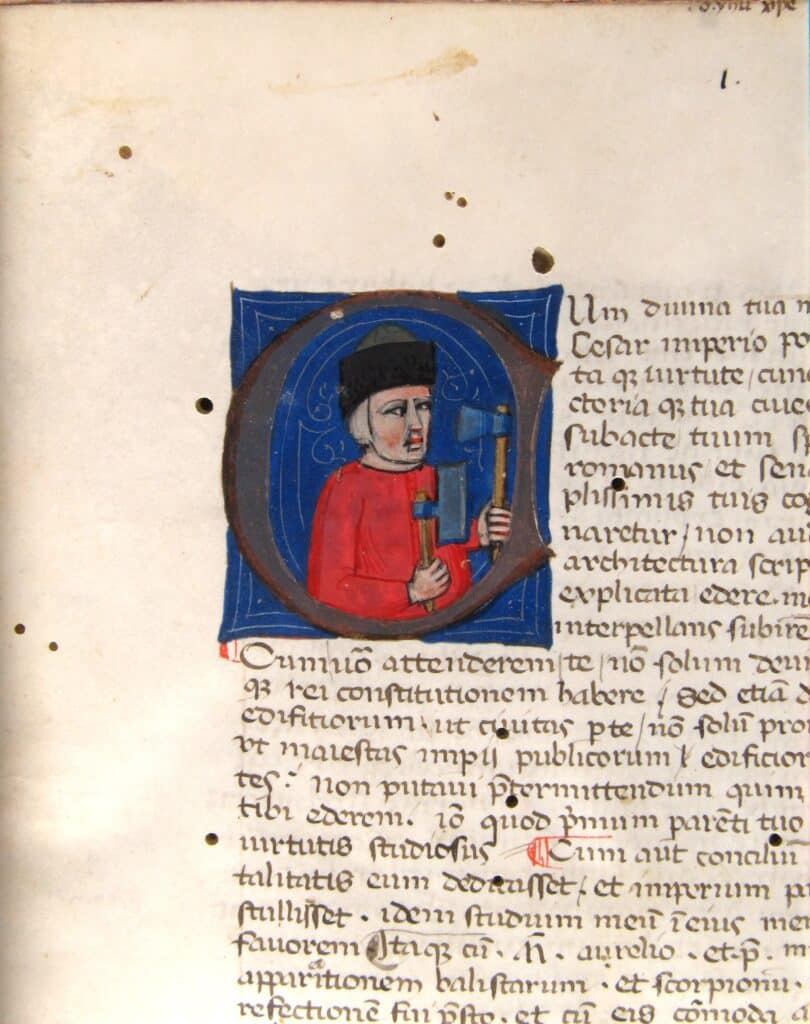 1.
Um diuina tua m
Cesar imperio po
ta qȝ uirtute / cunc
ctoria qȝ tua ciue
subacte tuum sp
romanus et sena
plissimis tuis cog
naretur / non aud
architectura scrip
explicata edere. me
interpellans subire
Cum uō attenderem / te / nō solum de
qȝ rei constitutionem habere / sed etiā d
edifitiorum. ut ciuitas p te / nō solū pro
ut maiestas impij publicorum / edificior
tes: non putaui p̄termittendum quim
tibi ederem. iō quod p̄mum parenti tuo
uirtutis studiosus Cum aūt conciliū
talitatis eum dedicasset / et imperium p
stulisset. idem studium meū ī eius me
fauorem Itaqȝ cū. M. aurelio. et. p̄. m
apparitionem balistarum. et scorpionū.
refectionē fui p̄sto. et cū eis cōmoda a